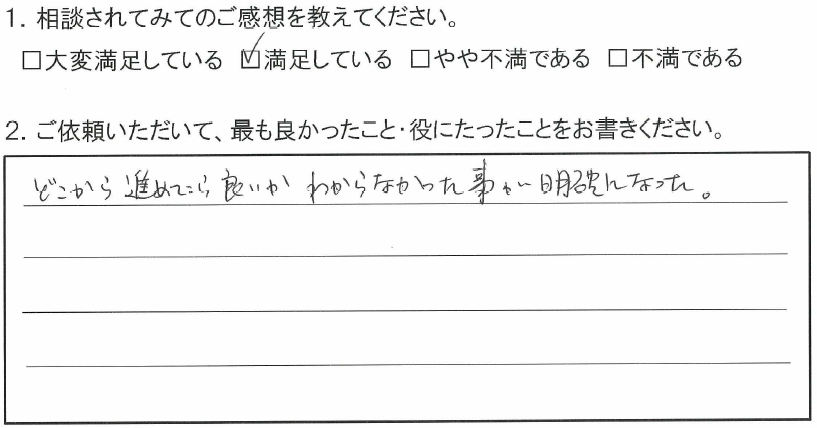 1. 相談されてみてのご感想を教えてください。
□大変満足している ☑満足している □やや不満である □不満である
2. ご依頼いただいて、最も良かったこと・役にたったことをお書きください。
どこから進めたら良いか わからなかった事が明確になった。